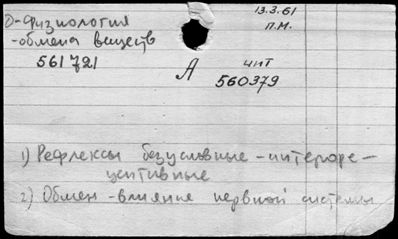 О-Физиология
-обмена веществ
561721
13.3.61
П.М.
А
чит
560379
1) Рефлексы безусловные -интероре-
цептивные
2) Обмен -влияние нервной системы